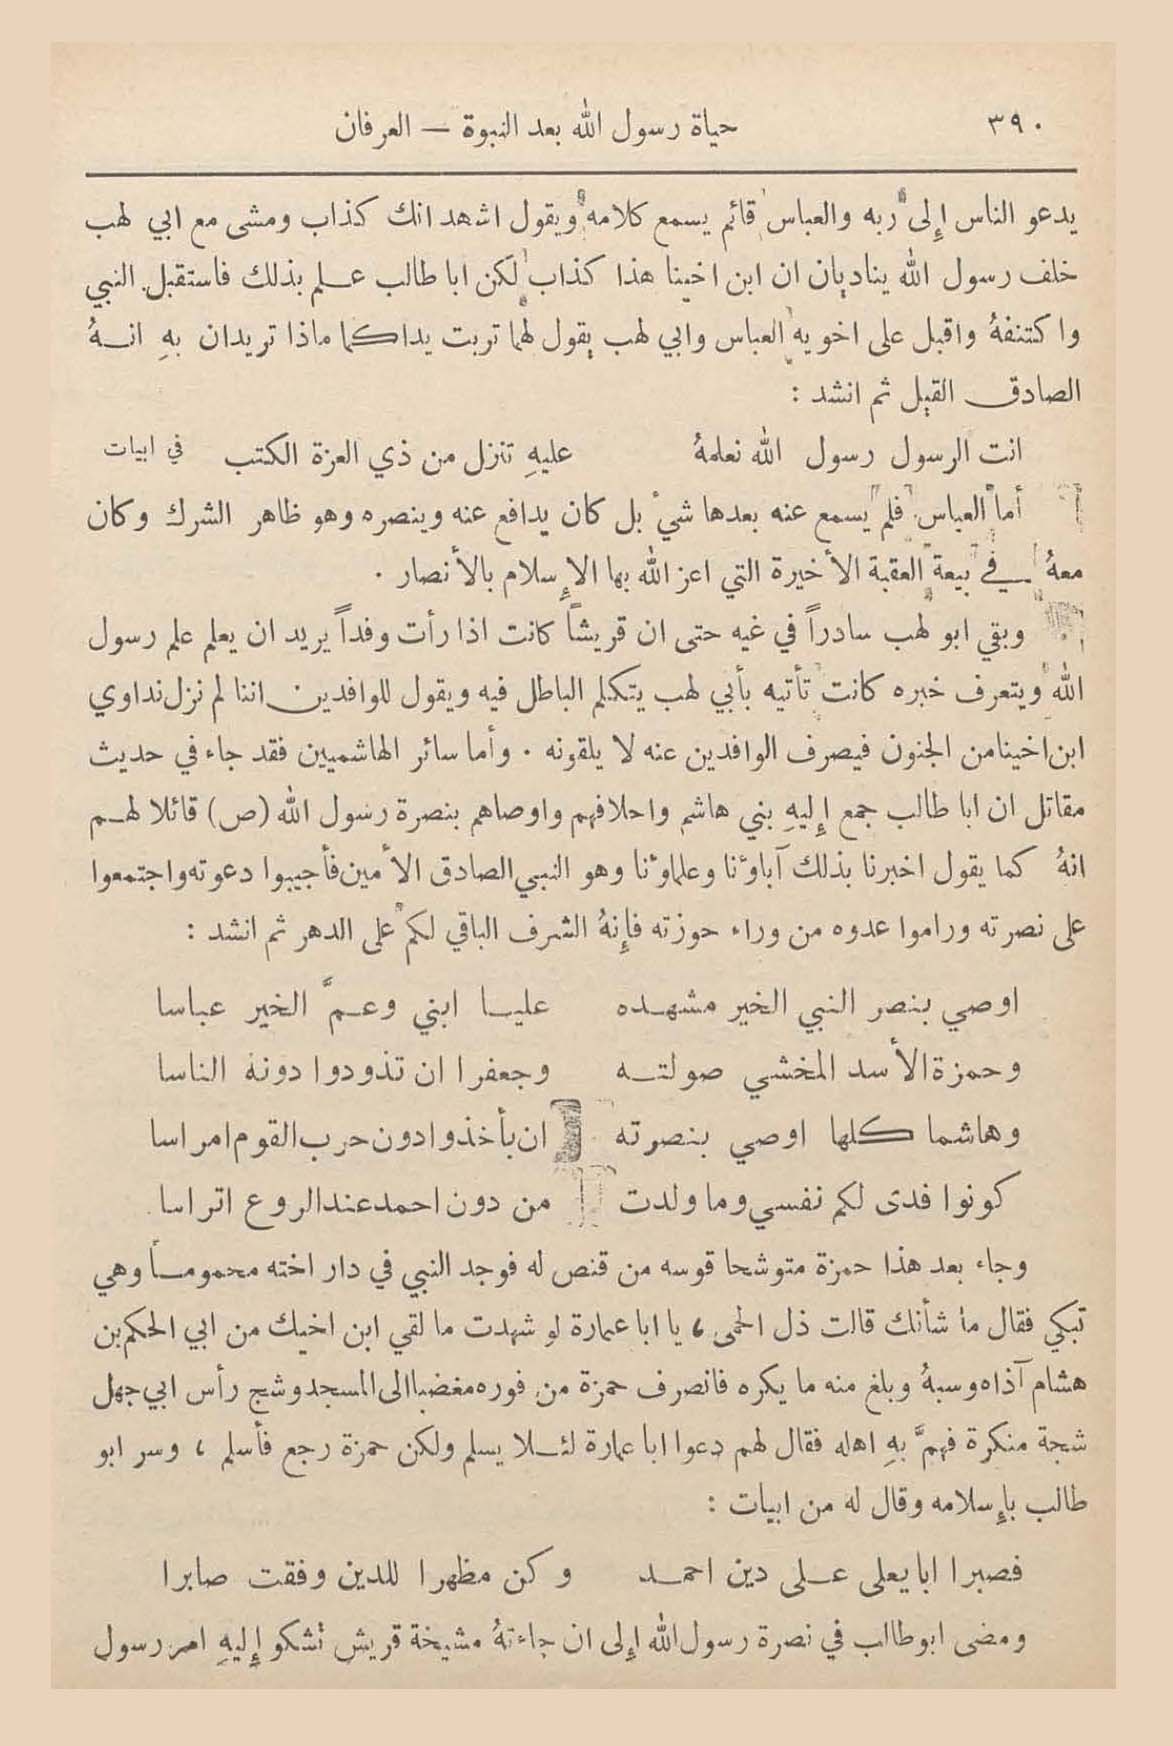 ٣٩٠ حياة رسول الله بعد النبوة — العرفان
يدعو الناس إِلى ربه والعباس قائم يسمع كلامه ويقول اشهد انك كذاب ومشى مع ابي لهب
خلف رسول الله يناديان ان ابن اخينا هذا كذاب لكن ابا طالب علم بذلك فاستقبل النبي
واكتنفهُ واقبل على اخويه العباس وابي لهب يقول لهما تربت يداكما ماذا تريدان بهِ انهُ
الصادق القيل ثم انشد :
انت الرسول رسول الله نعلمهُ عليهِ تنزل من ذي العزة الكتب في ابيات
أما العباس فلم يسمع عنه بعدها شيء بل كان يدافع عنه وينصره وهو ظاهر الشرك وكان
معهُ في بيعة العقبة الأخيرة التي اعز الله بها الإِسلام بالأنصار .
وبقي ابو لهب سادراً في غيه حتى ان قريشاً كانت اذا رأت وفداً يريد ان يعلم علم رسول
الله ويتعرف خبره كانت تأتيه بأبي لهب يتكلم الباطل فيه ويقول للوافدين اننا لم نزل نداوي
ابن اخينا من الجنون فيصرف الوافدين عنه لا يلقونه . وأما سائر الهاشميين فقد جاء في حديث
مقاتل ان ابا طالب جمع إِليهِ بني هاشم واحلافهم واوصاهم بنصرة رسول الله (ص) قائلا لهم
انهُ كما يقول اخبرنا بذلك آباؤنا وعلماؤنا وهو النبي الصادق الأمين فأجيبوا دعوته واجتمعوا
على نصرته وراموا عدوه من وراء حوزته فإِنهُ الشرف الباقي لكم على الدهر ثم انشد :
اوصي بنصر النبي الخير مشهده عليا ابني وعمَّ الخير عباسا
وحمزة الأسد المخشي صولته وجعفرا ان تذودوا دونه الناسا
وهاشما كلها اوصي بنصرته ان يأخذوا دون حرب القوم امراسا
كونوا فدى لكم نفسي وما ولدت من دون احمد عند الروع اتراسا
وجاء بعد هذا حمزة متوشحا قوسه من قنص له فوجد النبي في دار اخته محموماً وهي
تبكي فقال ما شأنك قالت ذل الحمى ، يا ابا عمارة لو شهدت ما لقي ابن اخيك من ابي الحكم بن
هشام آذاه وسبهُ وبلغ منه ما يكره فانصرف حمزة من فوره مغضبا الى المسجد وشج رأس ابي جهل
شجة منكرة فهمَّ بهِ اهله فقال لهم دعوا ابا عمارة لئلا يسلم ولكن حمزة رجع فأسلم ، وسر ابو
طالب بإِسلامه وقال له من ابيات :
فصبرا ابا يعلى على دين احمد وكن مظهرا للدين وفقت صابرا
ومضى ابو طالب في نصرة رسول الله إِلى ان جاءتهُ مشيخة قريش تشكو إِليهِ امر رسول